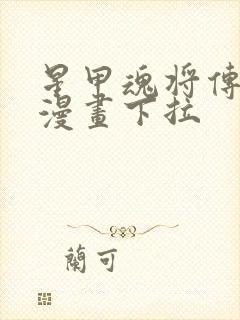 星甲魂将傳
漫畫下拉
蘭可